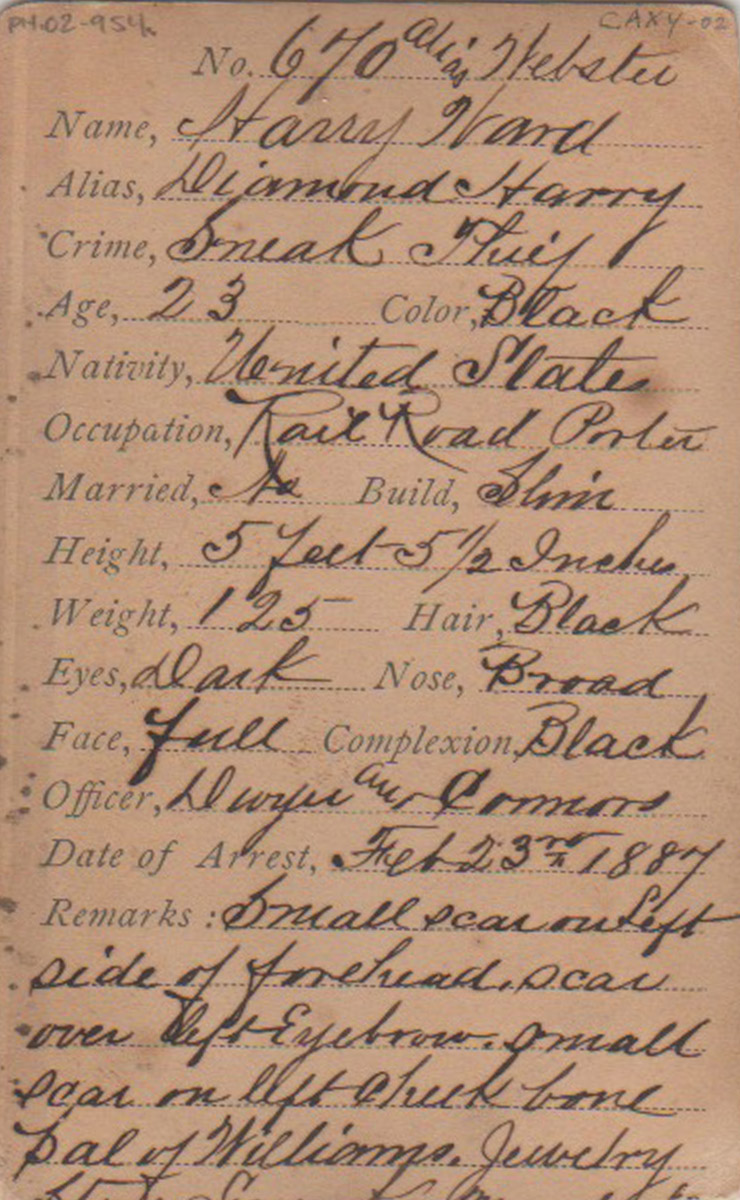 PH.02-954. CAXY-02
No. 670 alias Webster
Name, Harry Ward
Alias, Diamond Harry
Crime, Sneak Thief
Age, 23 Color, Black
Nativity, United States
Occupation, Rail Road Porter
Married, No Build, Slim
Height, 5 feet 5 1/2 Inches
Weight, 125 Hair, Black
Eyes, Dark Nose, Broad
Face, full Complexion, Black
Officer, Dwyer and Connors
Date of Arrest, Feb 23rd 1887
Remarks: Small scar on Left
side of forehead. scar
over left Eyebrow. small
scar on left Cheek bone
Pal of Williams. Jewelry